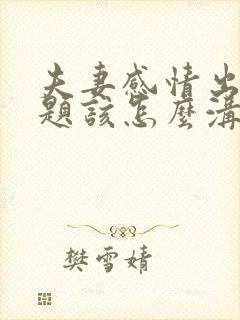 夫妻感情出
題該怎麼溝
樊雪婧